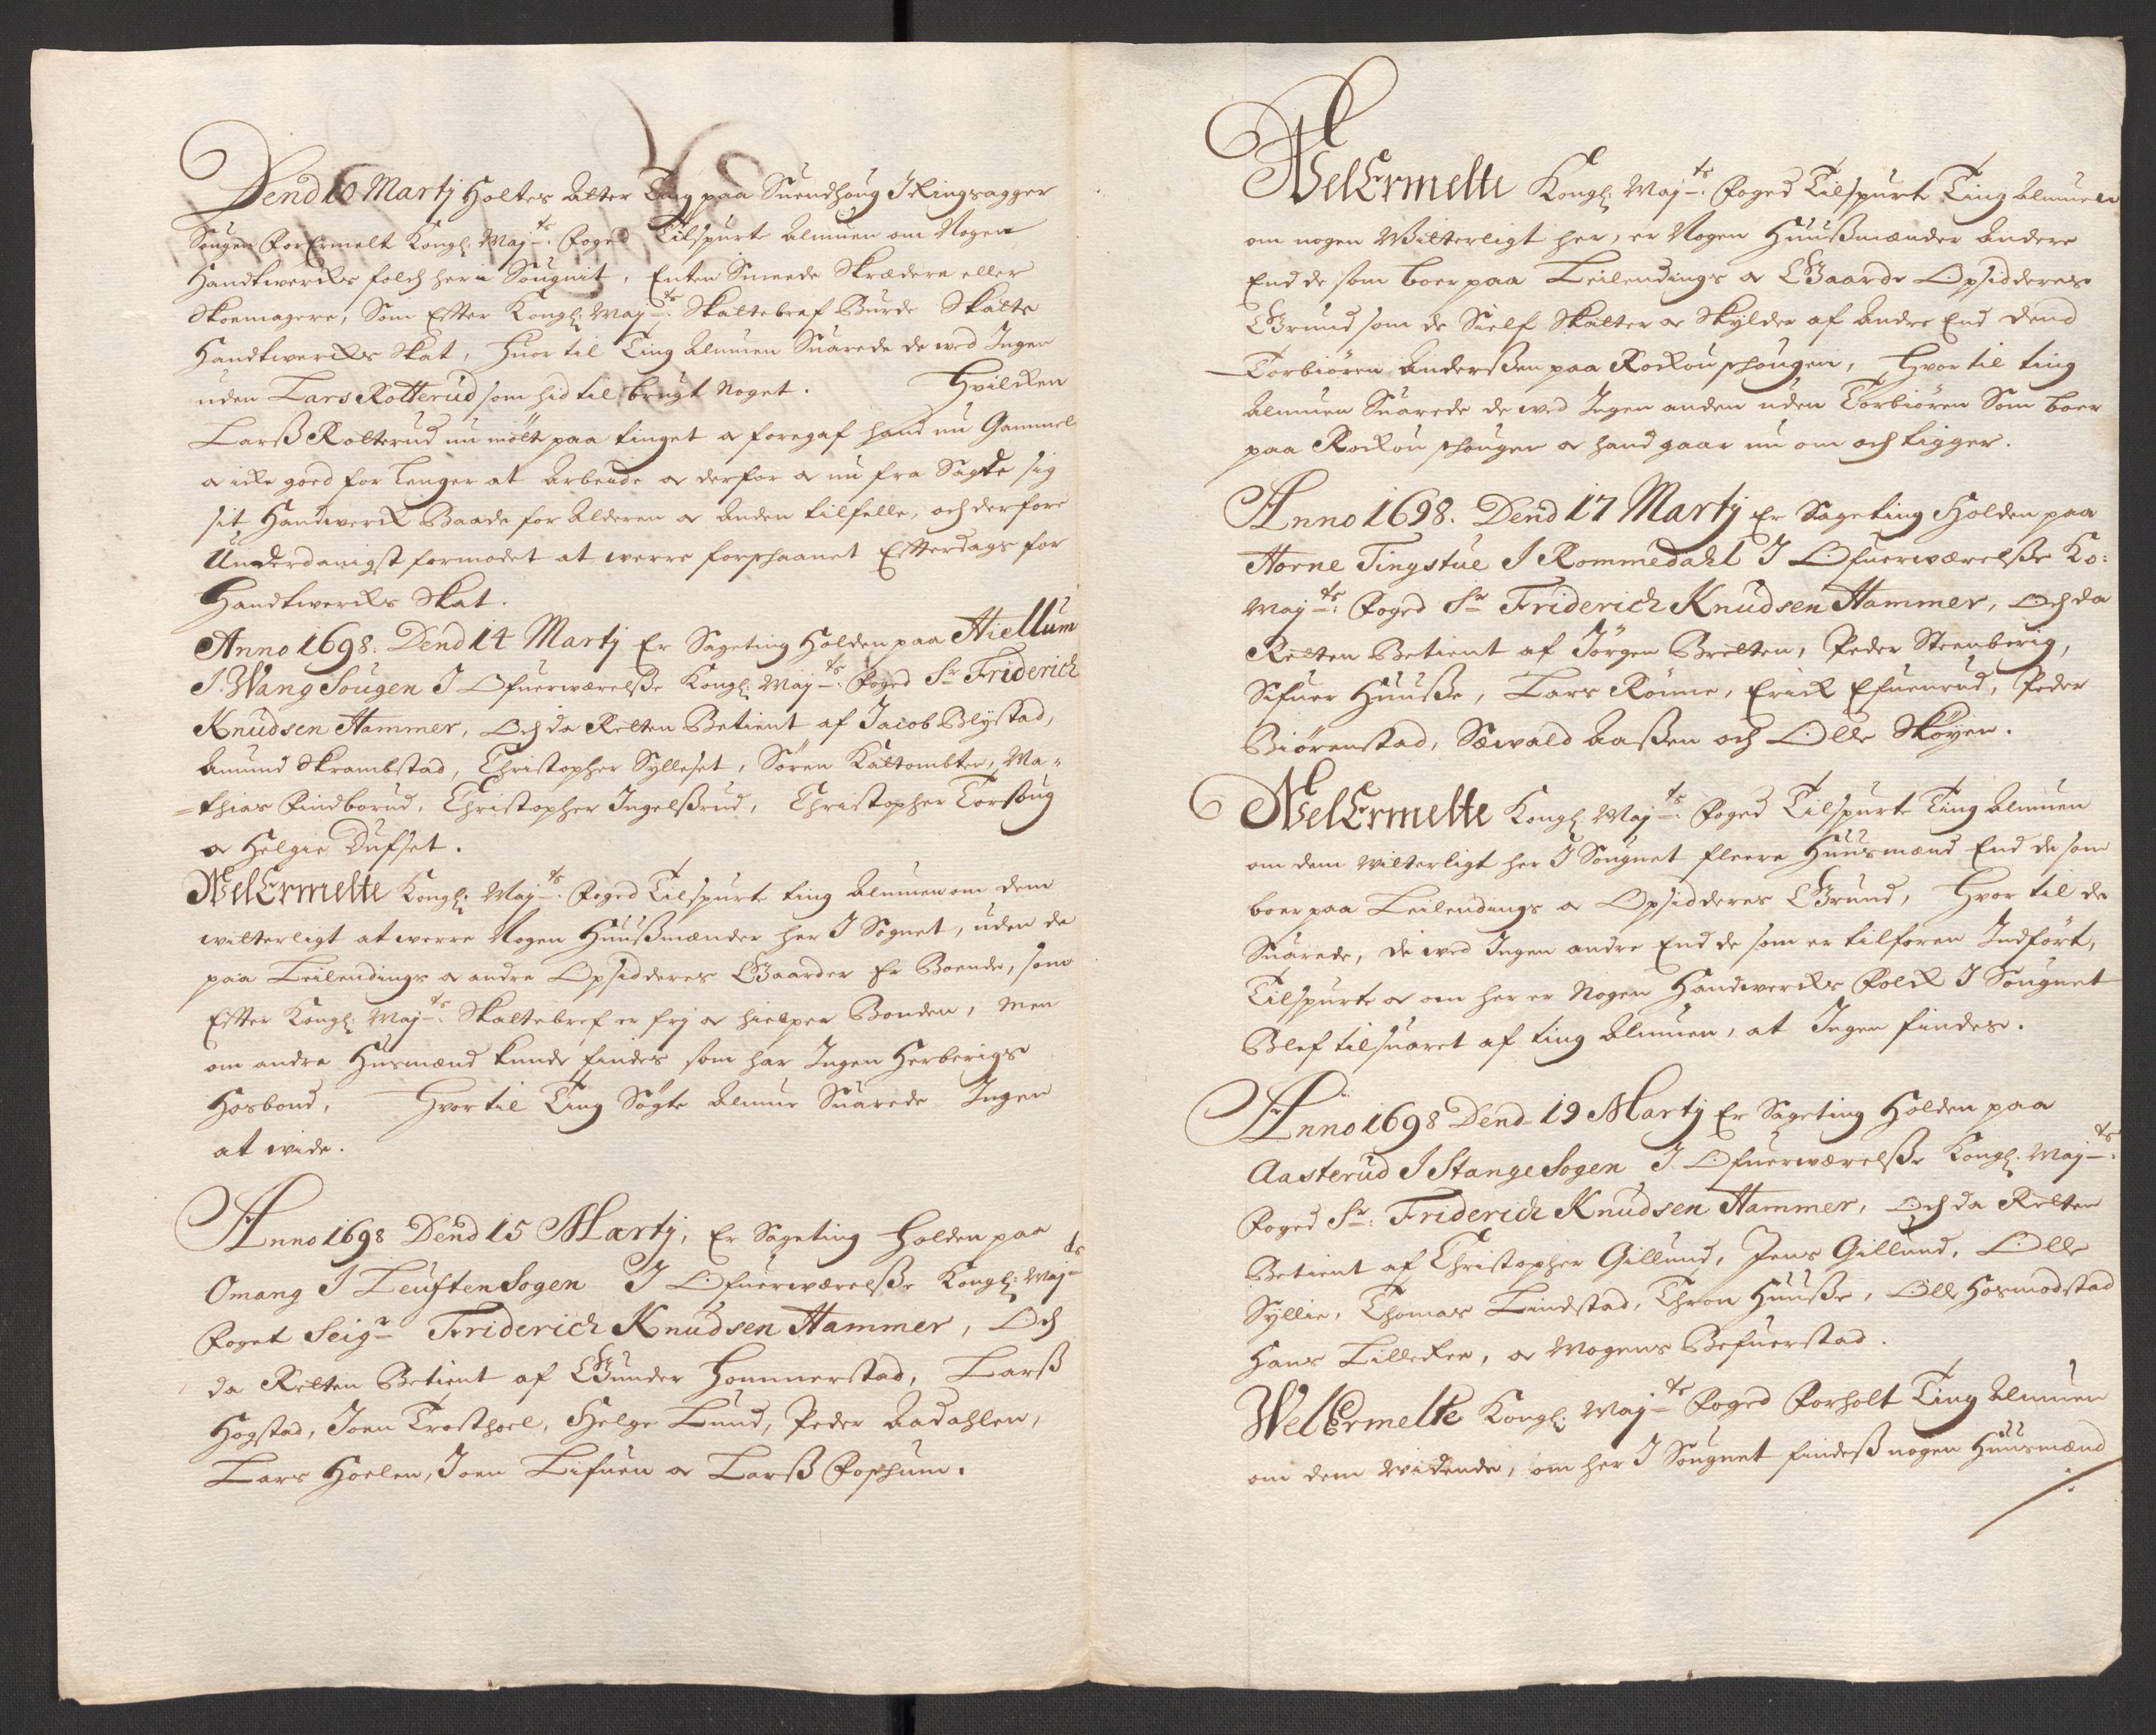 Dend 10 Martj Holtes Atter Ting paa Suendhoug I Ringsagger
Sougen ForErmelt Kongl: Maj:ts Foged Tilspurte Almuen om Nogen
Handtwercks folch her i Sougnit, Enten Smeede Skrædere eller
Skoemagere, Som Effter Kongl: Maj:ts Skattebref Burde Skatte
Handtwercks Skat, Huor til Ting Almuen Suarede de wed Ingen
uden Lars Rotterud som hid til brugt noget. Hvilcken
Larss Rotterud nu mött paa tinget og foregaf hand nu Gammel
og icke goed for lenger at Arbeide og derfor og nu fra Sagde sig
sit Handwerck Baade for Alderen og Anden tilfelle, och derfore
Underdanigst formodet at werre forschaanet Effterdags for
Handtwercks Skat.
Anno 1698. Dend 14 Martj Er Sageting Holden paa Hiellum
I Wang Sougen I Ofuerwærelsse Kongl: Maj:ts Foged Sr Friderich
Knudsen Hammer, Och da Retten Betient af Jacob Blystad,
Amund Skrambstad, Christopher Sylleset, Sören Kaltombter, Ma-
-thias Findborud, Christopher Ingelssrud, Christopher Torsoug
og Helgie Dufset.
WelErmelte Kongl: Maj:ts Foged Tilspurte ting Almuen om dem
witterligt at werre Nogen Huussmænder her I Sognet, uden de
paa Leilendings og andre Opsidderes Gaarder Er Boende, som
Effter Kongl: Maj:ts Skattebref er frj og hielper Bonden, Men
om andre Husmænd kunde findes som har Ingen Herberigs
Hosbond, Hvortil Ting Søgte Almue Suarede Ingen
at wide.
Anno 1698 Dend 15 Martj, Er Sageting Holden paa
Omang I Leuften Sogen I Ofuerwærelsse Kongl: Maj:ts
Foget Seigr Friderich Knudsen Hammer, Och
da Retten Betient af Gunder Hommerstad, Larss
Hogstad, Joen Trosthoel, Helge Lund, Peder Aadahlen,
Lars Hoelen, Joen Lifuen og Larss Foschum.
WelErmelte Kongl: Maj:ts Foged Tilspurte Ting Almuen
om nogen Witterligt her, er Nogen Huussmænder Andere
End de som boer paa Leilendings og Gaarde Opsidderes
Grund som de Sielf Skatter og Skylder af Andre End Dend
Torbiören Anderssen paa Rockou schougen, Hvor til ting
Almuen Suarede de wed Ingen anden uden Torbiören Som boer
paa Rockou schougen og hand gaar nu om och tigger.
Anno 1698. Dend 17 Martj Er Sageting Holden paa
Horne Tingstue I Rommedahl I Ofuerwærelsse Ko:
Maj:ts Foged Sr Friderich Knudsen Hammer, Och da
Retten Betient af Jörgen Bretten, Peder Steenberig,
Sifuer Huusse, Lars Rönne, Erick Efuenrud, Peder
Biörenstad, Sewald Aassen och Olle Sköyen.
WelErmelte Kongl: Maj:ts Foged Tilspurte Ting Almuen
om dem witterligt her I Sougnet fleere Huusmænd End de som
boer paa Leilendings og Opsidderes Grund, Hvor til de
Suarede, de wed Ingen andre End de som er tilforen Indfört,
Tilspurte og om her er Nogen Handwercks Folck I Sougnet
Blef tilsuaret af ting Almuen, at Ingen findes.
Anno 1698 Dend 19 Martj Er Sageting Holden paa
Aasterud I Stange Sogen I Ofuerwærelsse Kongl: Maj:ts
Foged Sr: Friderich Knudsen Hammer, Och da Retten
Betient af Christopher Gillund, Jens Gillund, Olle
Syllie, Thomas Lindstad, Thron Huusse, Olle Hosmodstad
Hans Lilleker, og Mogens Befuerstad.
WelErmelte Kongl: Maj:ts Foged Forholt Ting Almuen
om dem widende, om her I Sougnet findess nogen Huusmænd